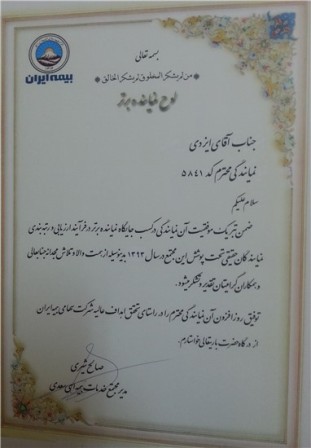 بسمه تعالی
من لم یشکر المخلوق لم یشکر الخالق
بیمه ایران
لوح نماینده برتر
جناب آقای ایزدی
نمایندگی محترم کد ۵۸۴۱
سلام علیکم
ضمن تبریک موفقیت آن نمایندگی در کسب جایگاه نماینده برتر در فرآیند ارزیابی و رتبه بندی
نمایندگان حقیقی تحت پوشش این مجتمع در سال ۱۳۹۲ بدینوسیله از همت والا و تلاش مجدانه جنابعالی
و همکاران گرامیتان تقدیر و تشکر میشود.
توفیق روز افزون آن نمایندگی محترم را در راستای تحقق اهداف عالیه شرکت سهامی بیمه ایران
از درگاه حضرت باریتعالی خواستارم.
صالح
مدیر مجتمع خدمات بیمه ای سعدی